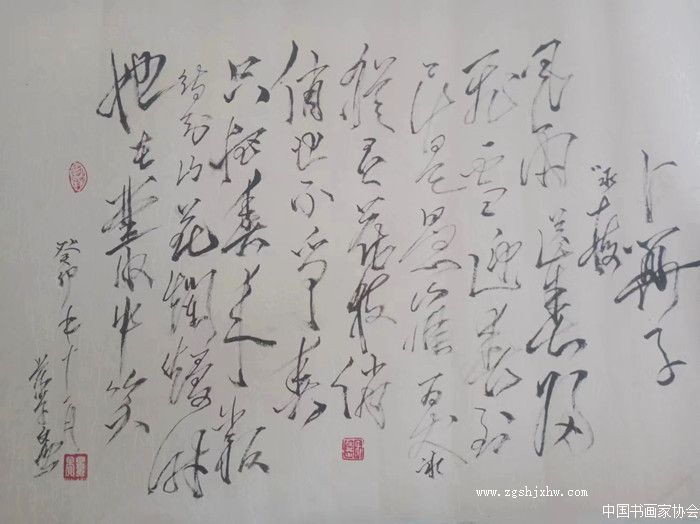 卜算子
咏梅
风雨送春归
飛雪迎春到
已是悬崖百丈冰
犹有花枝俏
俏也不争春
只把春来報
待到山花爛熳时
她在叢中笑
癸卯年十一月
www.zgshjxhw.com
中国书画家协会